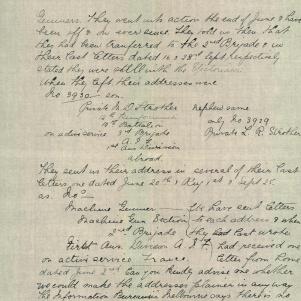 Gunners. They went into action the end of June & have
been off & on ever since. They told us then that
they had been transferred to the 2nd Brigade & in
their last letters dated 28th Sept respectively
stated they were still with the
When they left their addresses were
No 3930 son.
Private M. D. Strother nephew same
only No 3929
on active service 3rd Brigade Private L. R. Strother
A I F
1st Aus Division
abroad.
They sent us their address in several of their last
letters, one dated June 20th & Aug 1st & Sept 25
as. No
Machine Gunner We have sent letters
Machine Gun Section to each address & when
2nd Brigade they last wrote
First Aus. Division A. I. F. had received one
on active service France. letter from home
dated June 2nd Can you kindly advise one whether
we could make the addresses plainer in anyway
the Information Bureau in Melbourne says there is no